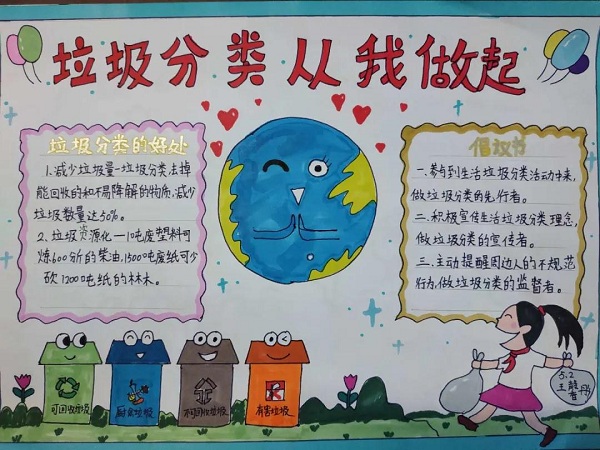 垃圾分类从我做起
垃圾分类的好处
1.减少垃圾量—垃圾分类去掉
能回收的和不易降解的物质,减少
垃圾数量达50%。
2、垃圾资源化—10吨废塑料可
炼600公斤的柴油,1500吨废纸可少
砍1200吨纸的林木。
倡议书
一、参与到生活垃圾分类活动中来,
做垃圾分类的先行者。
二、积极宣传生活垃圾分类理念,
做垃圾分类的宣传者。
三、主动提醒周边人的不规范
行为,做垃圾分类的监督者。
可回收垃圾
厨余垃圾
不可回收垃圾
有害垃圾
5.2